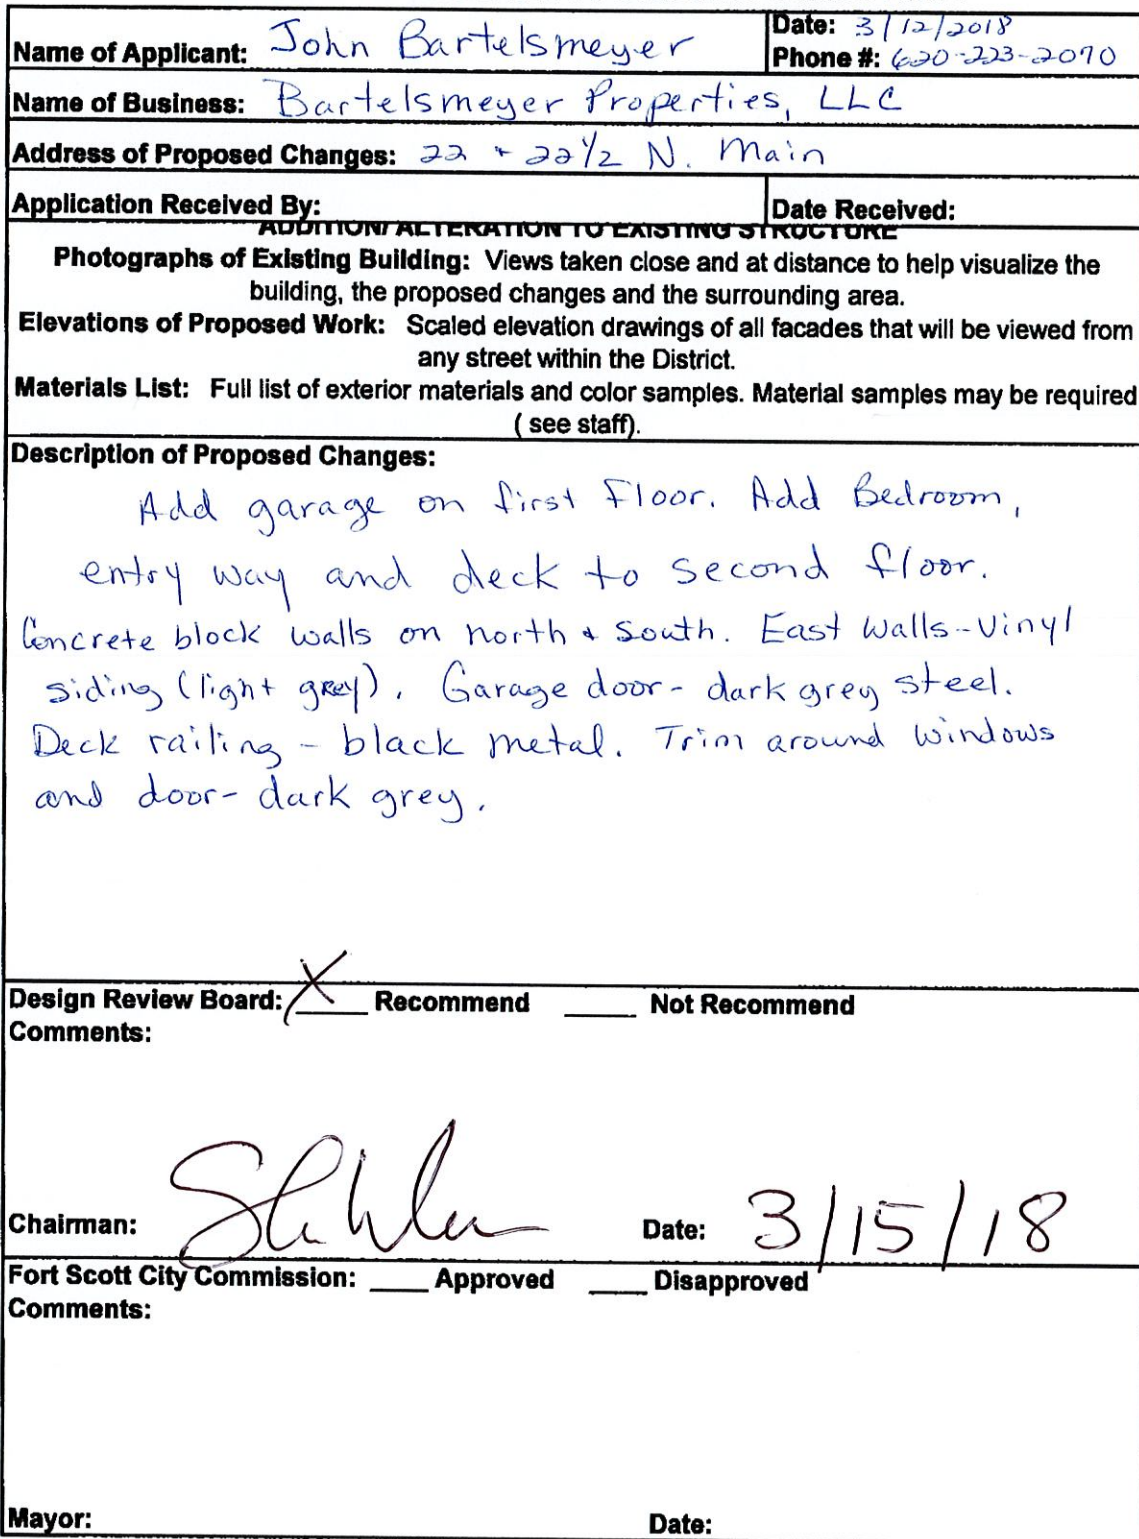 Name of Applicant: John Bartelsmeyer
Date: 3/12/2018
Phone #: 620-223-2070
Name of Business: Bartelsmeyer Properties, LLC
Address of Proposed Changes: 22 + 22 1/2 N. Main
Application Received By:
Date Received:
ADDITION/ ALTERATION TO EXISTING STRUCTURE
Photographs of Existing Building: Views taken close and at distance to help visualize the
building, the proposed changes and the surrounding area.
Elevations of Proposed Work: Scaled elevation drawings of all facades that will be viewed from
any street within the District.
Materials List: Full list of exterior materials and color samples. Material samples may be required
( see staff).
Description of Proposed Changes:
Add garage on first Floor. Add Bedroom,
entry way and deck to second floor.
Concrete block walls on north + South. East Walls--Vinyl
siding (light grey). Garage door- dark grey steel.
Deck railing - black metal. Trim around windows
and door- dark grey.
Design Review Board: X Recommend ____ Not Recommend
Comments:
Chairman:
Date: 3/15/18
Fort Scott City Commission: ____ Approved ____ Disapproved
Comments:
Mayor:
Date: